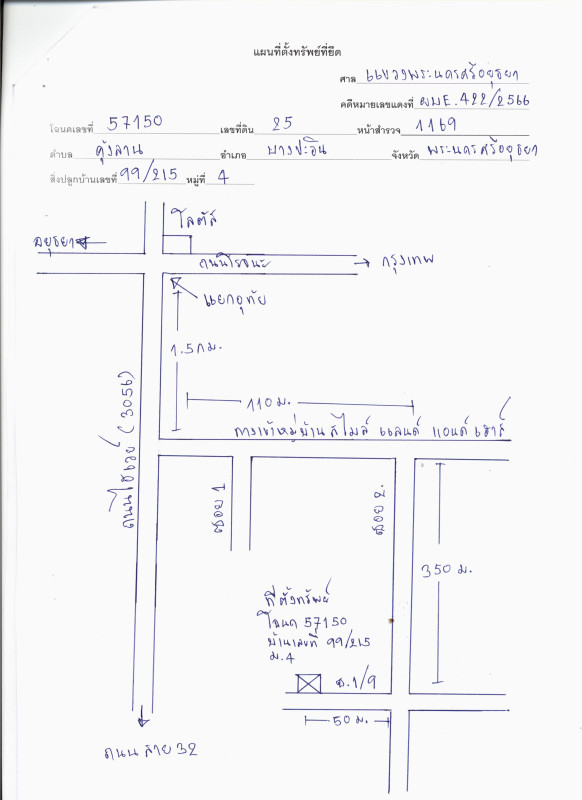 แผนที่ตั้งทรัพย์ที่ยึด
ศาล แขวงพระนครศรีอยุธยา
คดีหมายเลขแดงที่ ผบE.422/2566
โฉนดเลขที่ 57150 เลขที่ดิน 25 หน้าสำรวจ 1169
ตำบล คุ้งลาน อำเภอ บางปะอิน จังหวัด พระนครศรีอยุธยา
สิ่งปลูกบ้านเลขที่ 99/215 หมู่ที่ 4
โลตัส
อยุธยา
ถนนโรจนะ
กรุงเทพ
แยกอุทัย
1.5 กม.
110 ม.
ทางเข้าหมู่บ้าน สไมล์ แลนด์ แอนด์ เฮ้าส์
ถนนไฮเวย์ (3056)
ซอย 1
ซอย 2.
350 ม.
ที่ตั้งทรัพย์
โฉนด 57150
บ้านเลขที่ 99/215
ม.4
ซ.1/9
50 ม.
ถนน สาย 32